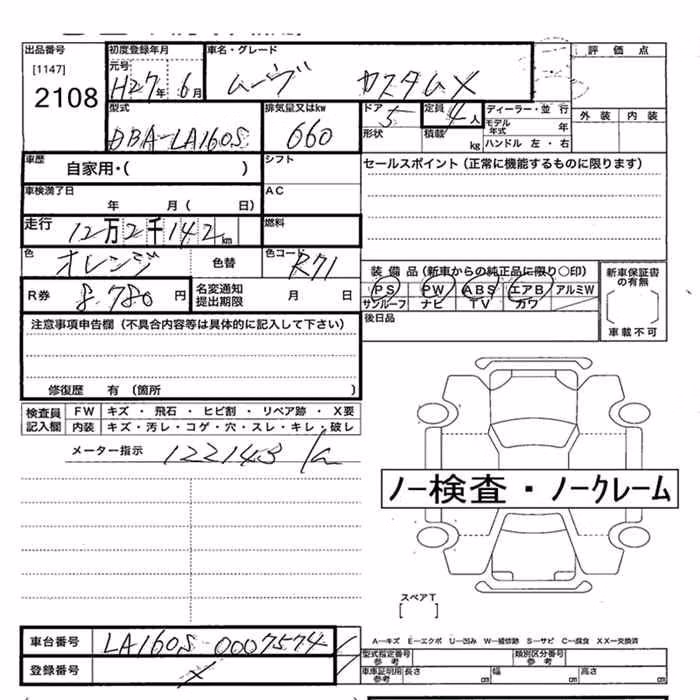 出品番号 初度登録年月 車名・グレード 評価点
[1147] 元号
2108 H27年 6月 ムーヴ カスタムX
型式 排気量又はkw ドア 5 定員 4人 ディーラー・並行 外装 内装
DBA-LA160S 660 形状 積載 kg モデル年式 年
ハンドル 左・右
車歴 自家用・( ) シフト セールスポイント(正常に機能するものに限ります)
車検満了日 年 月( 日) AC
走行 12万2千142km 燃料
色 オレンジ 色替 色コード R71
装備品(新車からの純正品に限り○印) 新車保証書の有無
R券 8.780円 名変通知提出期限 月 日 PS PW ABS エアB アルミW
サンルーフ ナビ TV カワ
車載不可
注意事項申告欄(不具合内容等は具体的に記入して下さい) 後日品
修復歴 有(箇所 )
検査員記入欄 FW キズ・飛石・ヒビ割・リペア跡・X要
内装 キズ・汚レ・コゲ・穴・スレ・キレ・破レ
メーター指示 122143 km
ノー検査・ノークレーム
スペアT
[ ]
車台番号 LA160S-0007574
A―キズ E―エクボ U―凹み W―補修跡 S―サビ C―腐食 XX―交換済
登録番号 X
型式指定番号 参考 類別区分番号 参考
車庫証明用 参考 長さ cm 幅 cm 高さ cm